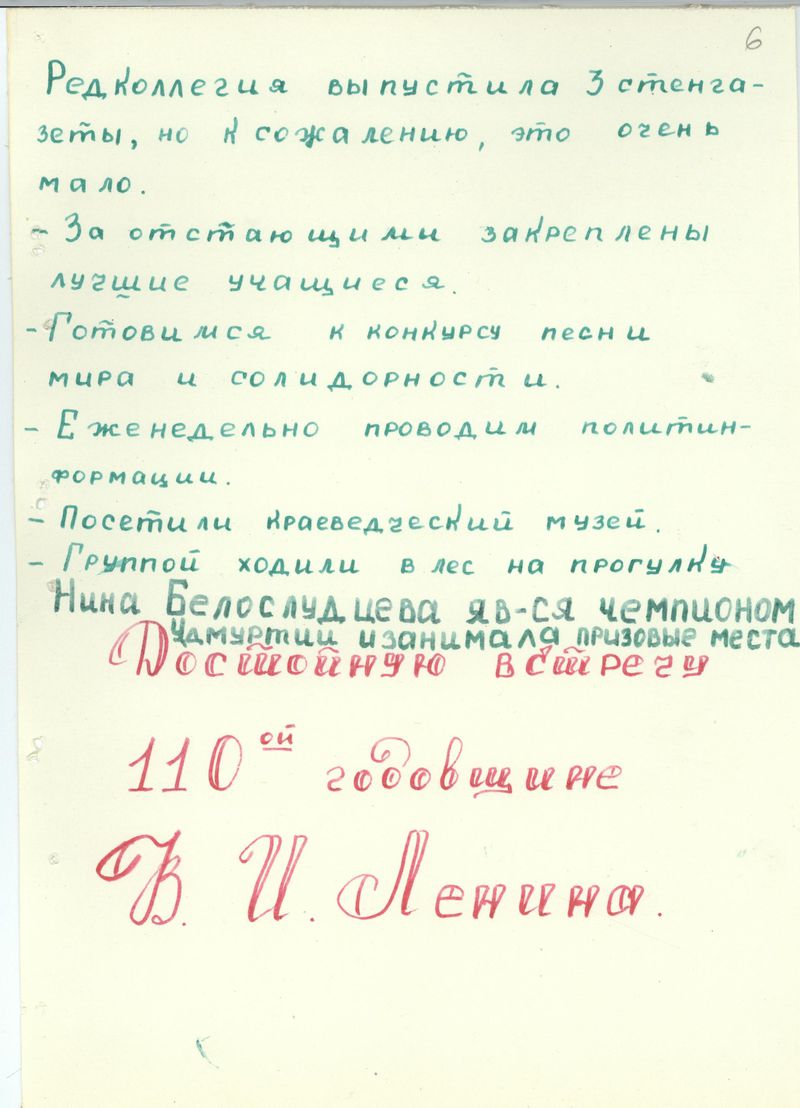 6
Редколлегия выпустила 3 стенга-
зеты, но к сожалению, это очень
мало.
- За отстающими закреплены
лучшие учащиеся.
- Готовимся к конкурсу песни
мира и солидорности.
- Еженедельно проводим политин-
формации.
- Посетили краеведческий музей.
- Группой ходили в лес на прогулку
Нина Белослудцева яв-ся чемпионом
Удмуртии и занимала призовые места
Достойную встречу
110ой годовщине
В. И. Ленина.